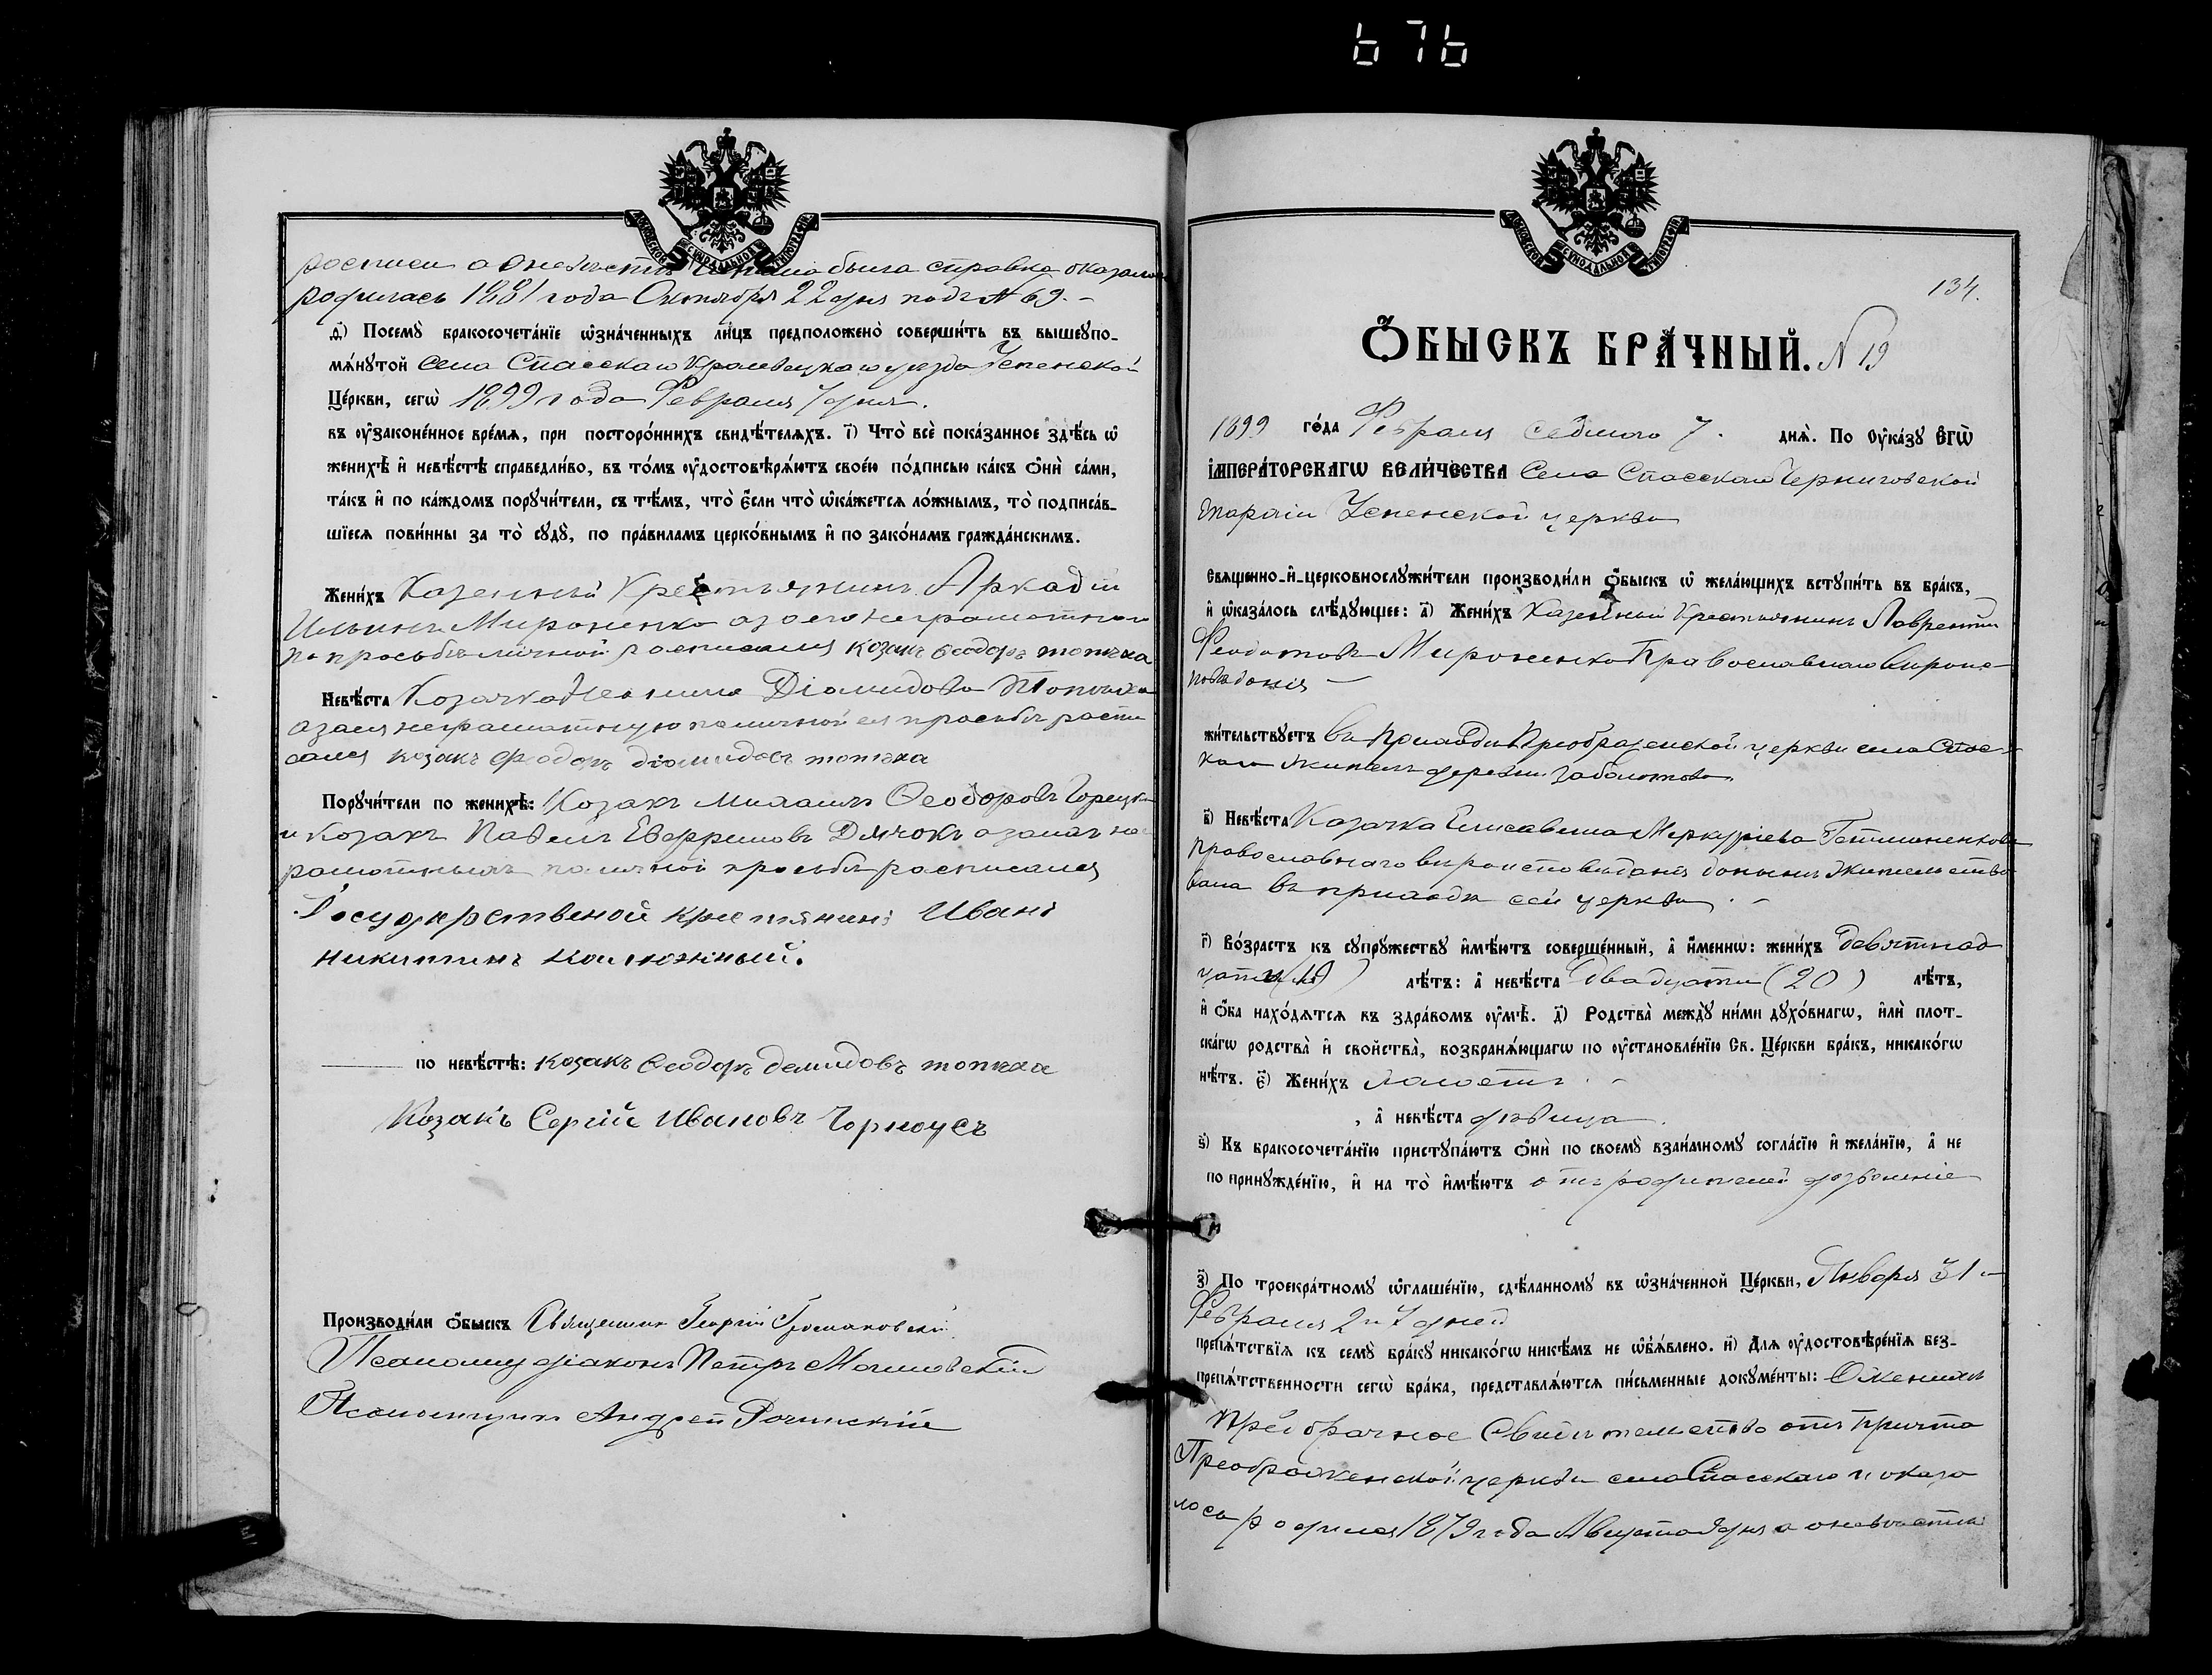 676
МОСКОВСКОЙ СѴНОДАЛЬНОЙ ТИПОГРАФІИ
росписи о невѣстѣ была справка оказалось
родилась 1881 года Октября 22 дня подъ № 69. –
д҃) Посемꙋ̀ бракосочета́нїе ѡ҆зна́ченныхъ ли́цъ предположено̀ соверши́ть въ вышеꙋпо-
мѧ́нꙋтой села Спасскаго Кролевецкаго уѣзда Успенской
Це́ркви, сегѡ̀ 1899 года Февраля 7 дня.
въ ᲂу҆законе́нное вре́мѧ, при посторо́ннихъ свидѣ́телѧхъ. і҃) Что̀ всѐ пока́занное здѣ́сь ѡ҆
женихѣ̀ и҆ невѣ́стѣ справедли́во, въ то́мъ ᲂу҆достовѣрѧ́ютъ свое́ю по́дписью ка́къ ѻ҆нѝ са́ми,
та́къ и҆ по ка́ждомъ порꙋчи́тели, съ тѣ́мъ, что̀ є҆́сли что̀ ѡ҆ка́жетсѧ ло́жнымъ, то̀ подписа́в-
шїесѧ пови́нны за то̀ сꙋдꙋ̀, по пра́виламъ церко́внымъ и҆ по зако́намъ гражда́нскимъ.
Жени́хъ Казенный Крестьянинъ Аркадій
Ильинъ Мироненко а за его неграмотнаго
по просьбѣ личной росписался козакъ Ѳеодоръ топчха
Невѣ́ста Козачка Діомидова
а за ея неграмотную по личной ея просьбѣ роспи
сался козакъ Феодоръ діомидовъ
Порꙋчи́тели по женихѣ̀: Козакъ Михаилъ Ѳеодоровъ Горецкій
и Козакъ Павелъ Евфимовъ Дячокъ а за нихъ не
грамотныхъ по личной просьбѣ росписался
Государственой крестянинъ Иванъ
никитинъ калюжный.
по невѣ́стѣ: козакъ Ѳеодоръ демидовъ
Козакъ Сергій Ивановъ Чорноусъ
Производи́ли ѻ҆́быскъ Священникъ Георгій Громаковскій
Псаломщ діаконъ Петръ
Псаломщикъ Андрей
МОСКОВСКОЙ СѴНОДАЛЬНОЙ ТИПОГРАФІИ
134.
Ѻ҆́БЫСКЪ БРА́ЧНЫЙ. № 19
1899 го́да Февраля седмого 7. днѧ̀. По ᲂу҆ка́зꙋ Є҆ГѠ̀
І҆МПЕРА́ТОРСКАГѠ ВЕЛИ́ЧЕСТВА Села Спасскаго Черниговской
Епархіи Успенской церкви
свѧще́нно-и҆-церковнослꙋжи́тели производи́ли ѻ҆́быскъ ѡ҆ жела́ющихъ встꙋпи́ть въ бра́къ,
и҆ ѡ҆каза́лось слѣ́дꙋющее: а҃) Жени́хъ Казенный Крестьянинъ Лаврентій
Феодотовъ Мироненко Православнаго вѣроис-
повѣданія –
жи́тельствꙋетъ въ приходѣ Преображенской церкви села Спас-
каго житель деревни Заболотова
в҃) Невѣ́ста Казачка Елисавета Меркуріева Гетманенкова
православнаго вѣроисповѣданія донынѣ жительство
вала въ приходѣ сей церкви. –
г҃) Во́зрастъ къ сꙋпрꙋ́жествꙋ и҆мѣ́ютъ соверше́нный, а҆ и҆́меннѡ: жени́хъ девятнад
цати (19) лѣ́тъ: а҆ невѣ́ста двадцати (20) лѣ́тъ,
и҆ ѻ҆́ба нахо́дѧтсѧ въ здра́вомъ ᲂу҆мѣ̀. д҃) Родства̀ междꙋ̀ ни́ми дꙋхо́внагѡ, и҆лѝ плот-
ска́гѡ родства̀ и҆ сво́йства̀, возбранѧ́ющагѡ по ᲂу҆становле́нїю Св. Це́ркви бра́къ, никако́гѡ
нѣ́тъ. є҃) Жени́хъ холостъ. –
, а҆ невѣ́ста дѣвица.
ѕ҃) Къ бракосочета́нїю пристꙋпа́ютъ ѻ҆нѝ по своемꙋ̀ взаи́мномꙋ согла́сїю и҆ жела́нїю, а҆ не
по принꙋжде́нїю, и҆ на то̀ и҆мѣ́ютъ отъ родителей дозволеніе
з҃) По троекра́тномꙋ ѡ҆глаше́нїю, сдѣ́ланномꙋ въ ѡ҆зна́ченной Це́ркви, Января 31 и
Февраля 2 и 7 дней
препѧ́тствїѧ къ семꙋ̀ бра́кꙋ никако́гѡ никѣ́мъ не ѡ҆б̾ѧ́влено. и҃) Длѧ ᲂу҆достовѣре́нїѧ без-
препѧ́тственности сегѡ̀ бра́ка, представлѧ́ютсѧ пи́сьменные докꙋме́нты: О женихѣ
предбрачное Свидѣтельство отъ Причта
Преображенской церкви села Спасскаго и оказа
лось родился 1879 года Августа дня а о невѣстѣ